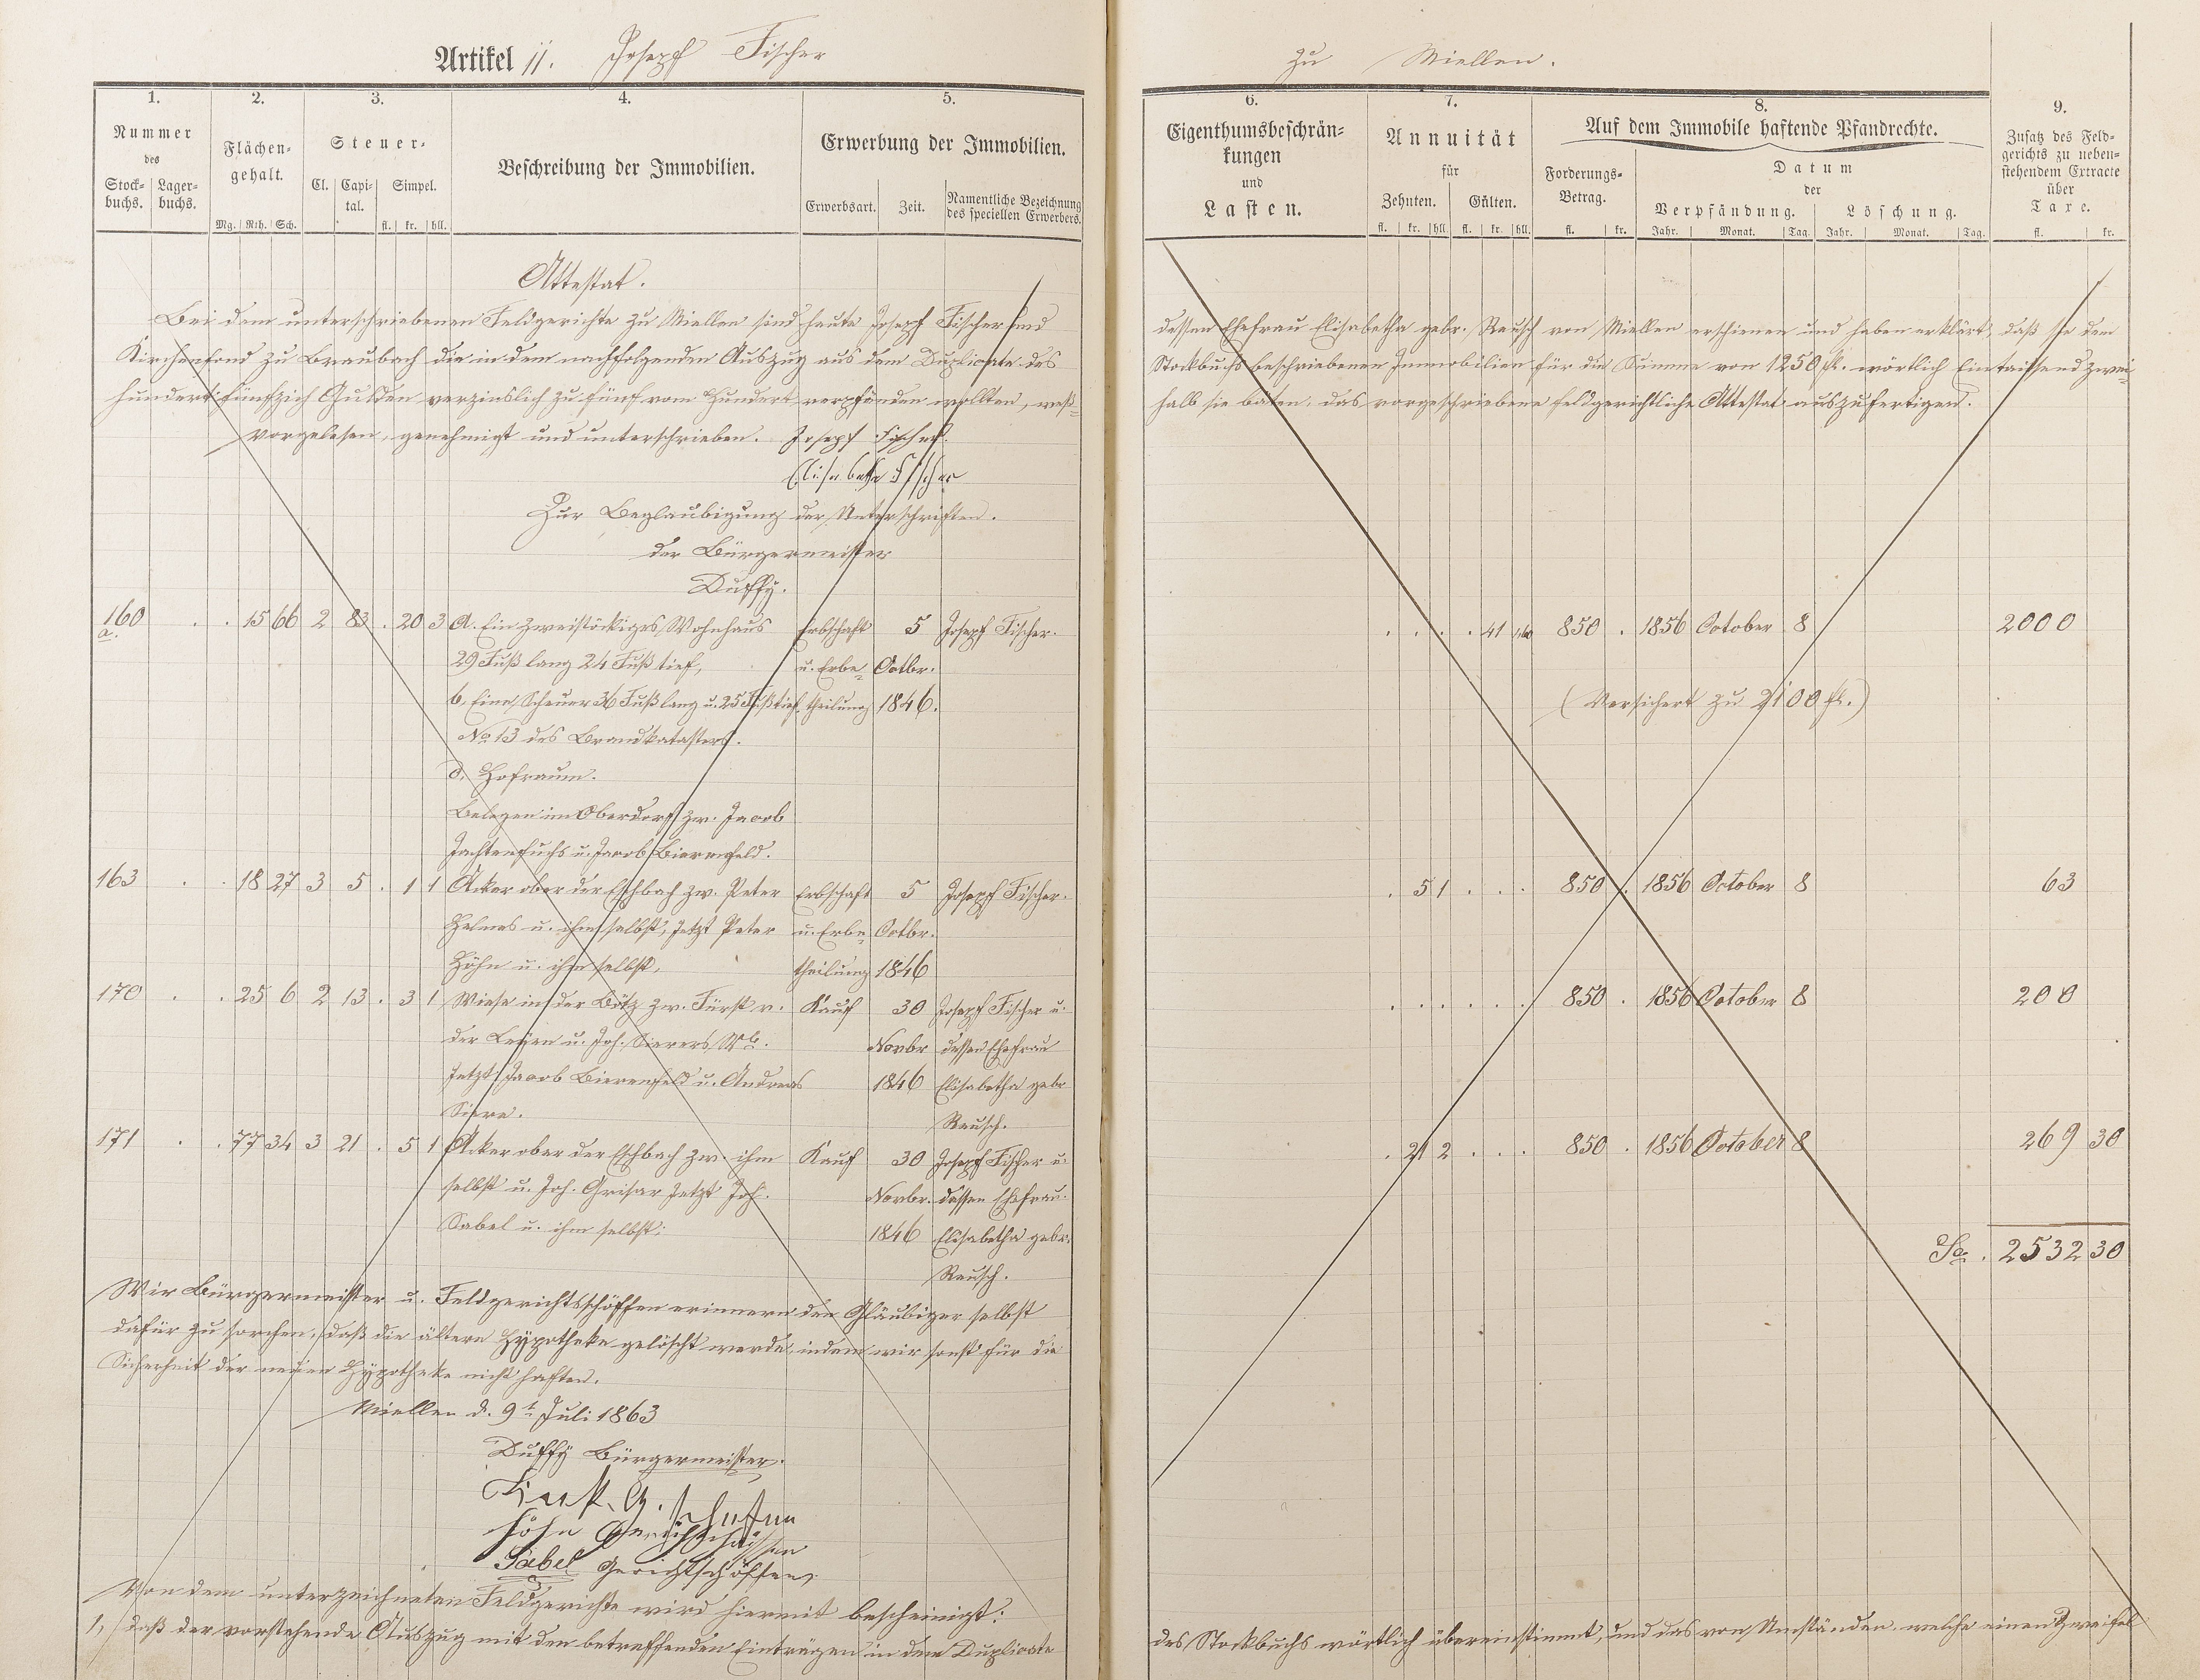 Artikel 11. Joseph Fischer
zu Miellen.
1. 2. 3. 4. 5.
6. 7. 8. 9.
Nummer des
Stock-buchs. Lager-buchs.
Flächen-gehalt.
Mg. Rth. Sch.
Steuer-
Cl. Capi-tal. Simpel.
fl. kr. hll.
Beschreibung der Immobilien.
Erwerbung der Immobilien.
Erwerbsart. Zeit. Namentliche Bezeichnung des speciellen Erwerbers.
Eigenthumsbeschrän-
kungen
und
Lasten.
Annuität
für
Zehnten. Gülten.
fl. kr. hll. fl. kr. hll.
Auf dem Immobile haftende Pfandrechte.
Forderungs-Betrag.
fl. kr.
Datum
der
Verpfändung. Löschung.
Jahr. Monat. Tag. Jahr. Monat. Tag.
Zusatz des Feld-
gerichts zu neben-
stehendem Extracte
über
Taxe.
fl. kr.
Attestat.
Bei dem unterschriebenen Feldgerichte zu Miellen sind heute Joseph Fischer und
dessen Ehefrau Elisabetha gebr. Rausch von Miellen erschienen und haben erklärt, daß sie dem
Kirchenfond zu Braubach die in dem nachfolgenden Auszug aus dem Duplicate des
Stockbuchs beschriebenen Immobilien für die Summe von 1250 fl. wörtlich Eintausend zwei-
hundert fünfzich Gulden verzinslich zu fünf vom Hundert verpfänden wollten, weß-
halb sie baten, das vorgeschriebene feldgerichtliche Attestat auszufertigen.
Vorgelesen, genehmigt und unterschrieben. Joseph Fischer.
Elisabetha Fischer
Zur Beglaubigung der Unterschriften.
der Bürgermeister
Duffy.
160 a. . . 15 66 2 83 . 20 3 a. Ein zweistöckiges Wohnhaus Erbschaft 5 Joseph Fischer. . . . . 41 850 . 1856 October 8 2000
29 Fuß lang 24 Fuß tief, u. Erbe- Octbr.
b. Eine Scheuer 36 Fuß lang u. 25 Fuß tief. theilung 1846. (Versichert zu 2100 fl.)
No 13 des Brandkatasters.
d. Hofraum.
Belegen im Oberdorf zw. Jacob
Jachtenfuchs u. Jacob Bierenfeld.
163 . . 18 27 3 5 . 1 1 Acker ober der Eschbach zw. Peter Erbschaft 5 Joseph Fischer. . 5 1 . . . 850 . 1856 October 8 63
Helmes u. ihm selbst, jetzt Peter u. Erbe- Octbr.
Höhn u. ihm selbst, theilung 1846
170 . . 25 6 2 13 . 3 1 Wiese in der Bötz zw. Fürst v. Kauf 30 Joseph Fischer u. . . . . . . 850 . 1856 October 8 200
der Leyen u. Joh. Sierers Wb. Novbr dessen Ehefrau
Jetzt Jacob Bierenfeld u. Andreas 1846 Elisabetha gebr
Siere. Rausch.
171 . . 77 34 3 21 . 5 1 Acker ober der Eschbach zw. ihm Kauf 30 Joseph Fischer u. . 21 2 . . . 850 . 1856 October 8 269 30
selbst u. Joh. Grisar Jetzt Joh. Novbr. dessen Ehefrau
Sabel u. ihm selbst; 1846 Elisabetha gebr.
Rausch.
Sa. 2532 30
Wir Bürgermeister u. Feldgerichtsschöffen erinnern den Gläubiger selbst
dafür zu sorchen, daß die ältere Hypotheke gelöscht werde, indem wir sonst für die
Sicherheit der neuen Hypotheke nicht haften.
Miellen d. 9t Juli 1863
Duffy Bürgermeister.
Höhn Gerichtschöffen
Sabel Gerichtschöffen,
Von dem unterzeichneten Feldgerichte wird hiermit bescheinigt:
1, daß der vorstehende Auszug mit den betreffenden Einträgen in dem Duplicate
des Stockbuchs wörtlich übereinstimmt, und das von Umständen, welche einen Zweifel